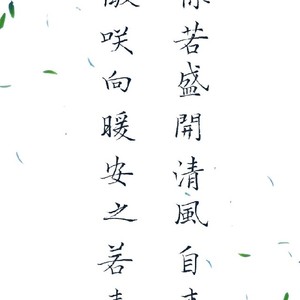 若盛開清風自
咲向暖安之若